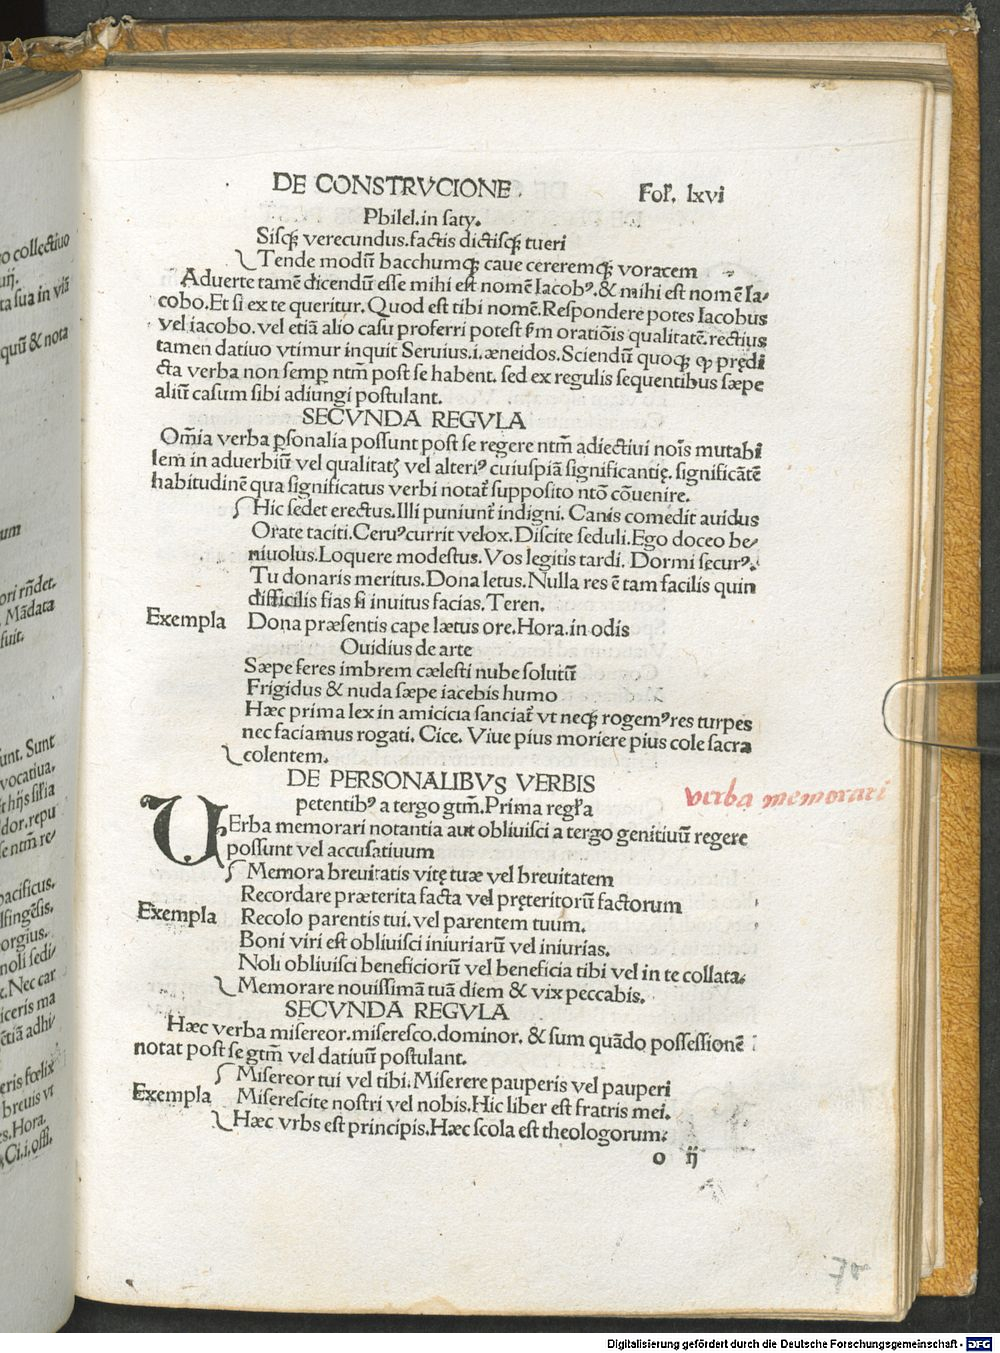 DE CONSTRVCIONE. Folꝰ. lxvi
Philel.in saty.
Sisqꝫ verecundus.factis dictisqꝫ tueri
Tende modū bacchumqꝫ caue cereremqꝫ voracem
Aduerte tamē dicendū esse mihi est nomē Iacobꝰ.& mihi est nomē Ia-
cobo.Et si ex te queritur. Quod est tibi nomē.Respondere potes Iacobus
vel iacobo.vel etiā alio casu proferri potest ẜm oratiōis qualitatē.rectius
tamen datiuo vtimur inquit Seruius.i.æneidos.Sciendū quoqꝫ ꝙ prędi
cta verba non semꝑ ntm̄ post se habent. sed ex regulis sequentibus sæpe
aliū casum sibi adiungi postulant.
SECVNDA REGVLA
Om̄ia verba ꝑsonalia possunt post se regere ntm̄ adiectiui nois̄ mutabi
lem in aduerbiū vel qualitatꝭ vel alteriꝰ cuiuspiā significantię. significātē
habitudinē qua significatus verbi notat᷑ supposito ntō cōuenire.
Hic sedet erectus.Illi puniunt᷑ indigni. Canis comedit auidus
Orate taciti.Ceruꝰ currit velox. Discite seduli.Ego doceo be-
niuolus.Loquere modestus. Vos legitis tardi. Dormi securꝰ.
Tu donaris meritus. Dona letus. Nulla res ē tam facilis quin
difficilis fias si inuitus facias. Teren.
Exempla Dona præsentis cape lætus ore.Hora.in odis
Ouidius de arte
Sæpe feres imbrem cælesti nube solutū
Frigidus & nuda sæpe iacebis humo
Hæc prima lex in amicicia sanciat᷑ vt neqꝫ rogemꝰ res turpes
nec faciamus rogati. Cice. Viue pius moriere pius cole sacra
colentem.
DE PERSONALIBVS VERBIS
petentibꝰ a tergo gtm̄.Prima regl̄a
verba memorari
VErba memorari notantia aut obliuisci a tergo genitiuū regere
possunt vel accusatiuum
Memora breuitatis vitę tuæ vel breuitatem
Recordare præterita facta vel pręteritorū factorum
Exempla Recolo parentis tui. vel parentem tuum.
Boni viri est obliuisci iniuriarū vel iniurias.
Noli obliuisci beneficiorū vel beneficia tibi vel in te collata.
Memorare nouissimā tuā diem & vix peccabis.
SECVNDA REGVLA
Hæc verba misereor.miseresco.dominor. & sum quādo possessionē
notat post se gtm̄ vel datiuū postulant.
Misereor tui vel tibi. Miserere pauperis vel pauperi
Exempla Miserescite nostri vel nobis.Hic liber est fratris mei.
Hæc vrbs est principis.Hæc scola est theologorum.
o ij
Digitalisierung gefördert durch die Deutsche Forschungsgemeinschaft - DFG